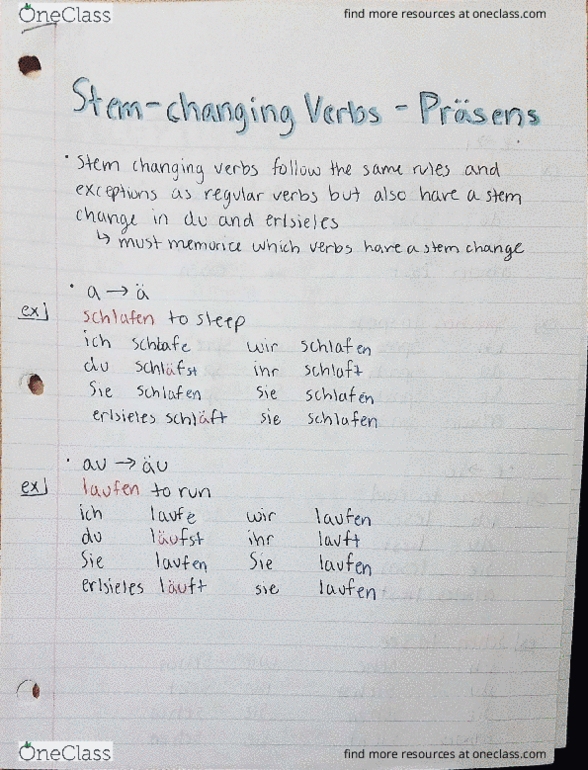 OneClass
find more resources at oneclass.com
Stem-changing Verbs - Präsens
• Stem changing verbs follow the same rules and
exceptions as regular verbs but also have a stem
change in du and er/sie/es
↳ must memorice which verbs have a stem change
• a → ä
ex] schlafen to sleep
ich schlafe wir schlafen
du schläfst ihr schlaft
Sie schlafen sie schlafen
er/sie/es schläft sie schlafen
• au → äu
ex] laufen to run
ich laufe wir laufen
du läufst ihr lauft
Sie laufen Sie laufen
er/sie/es läuft sie laufen
OneClass
find more resources at oneclass.com